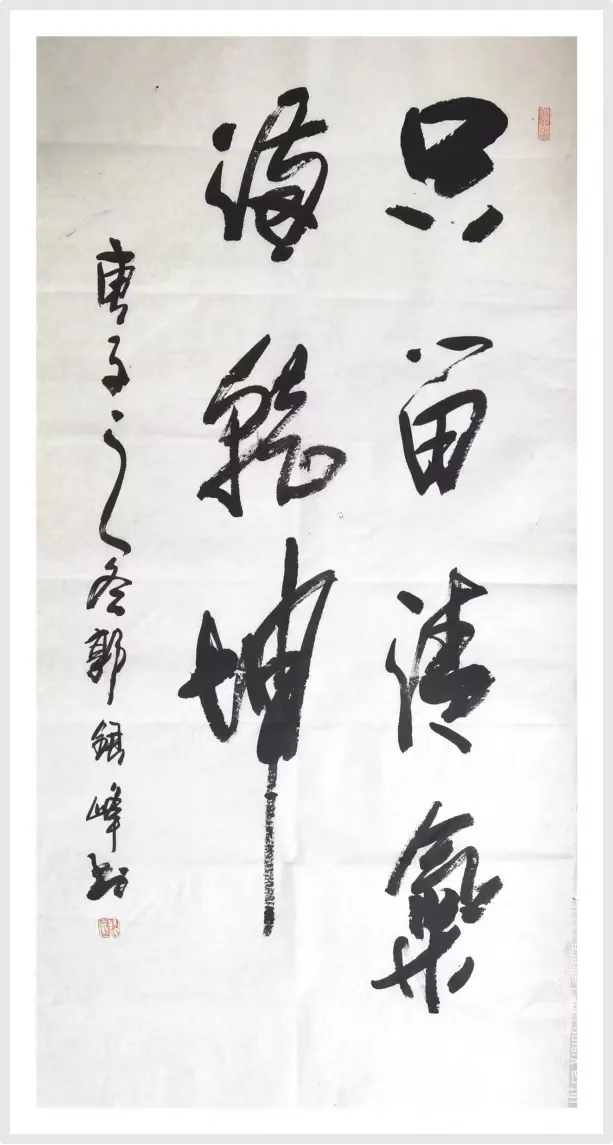 只留清氣
滿乾坤
庚子之冬郭 峰书